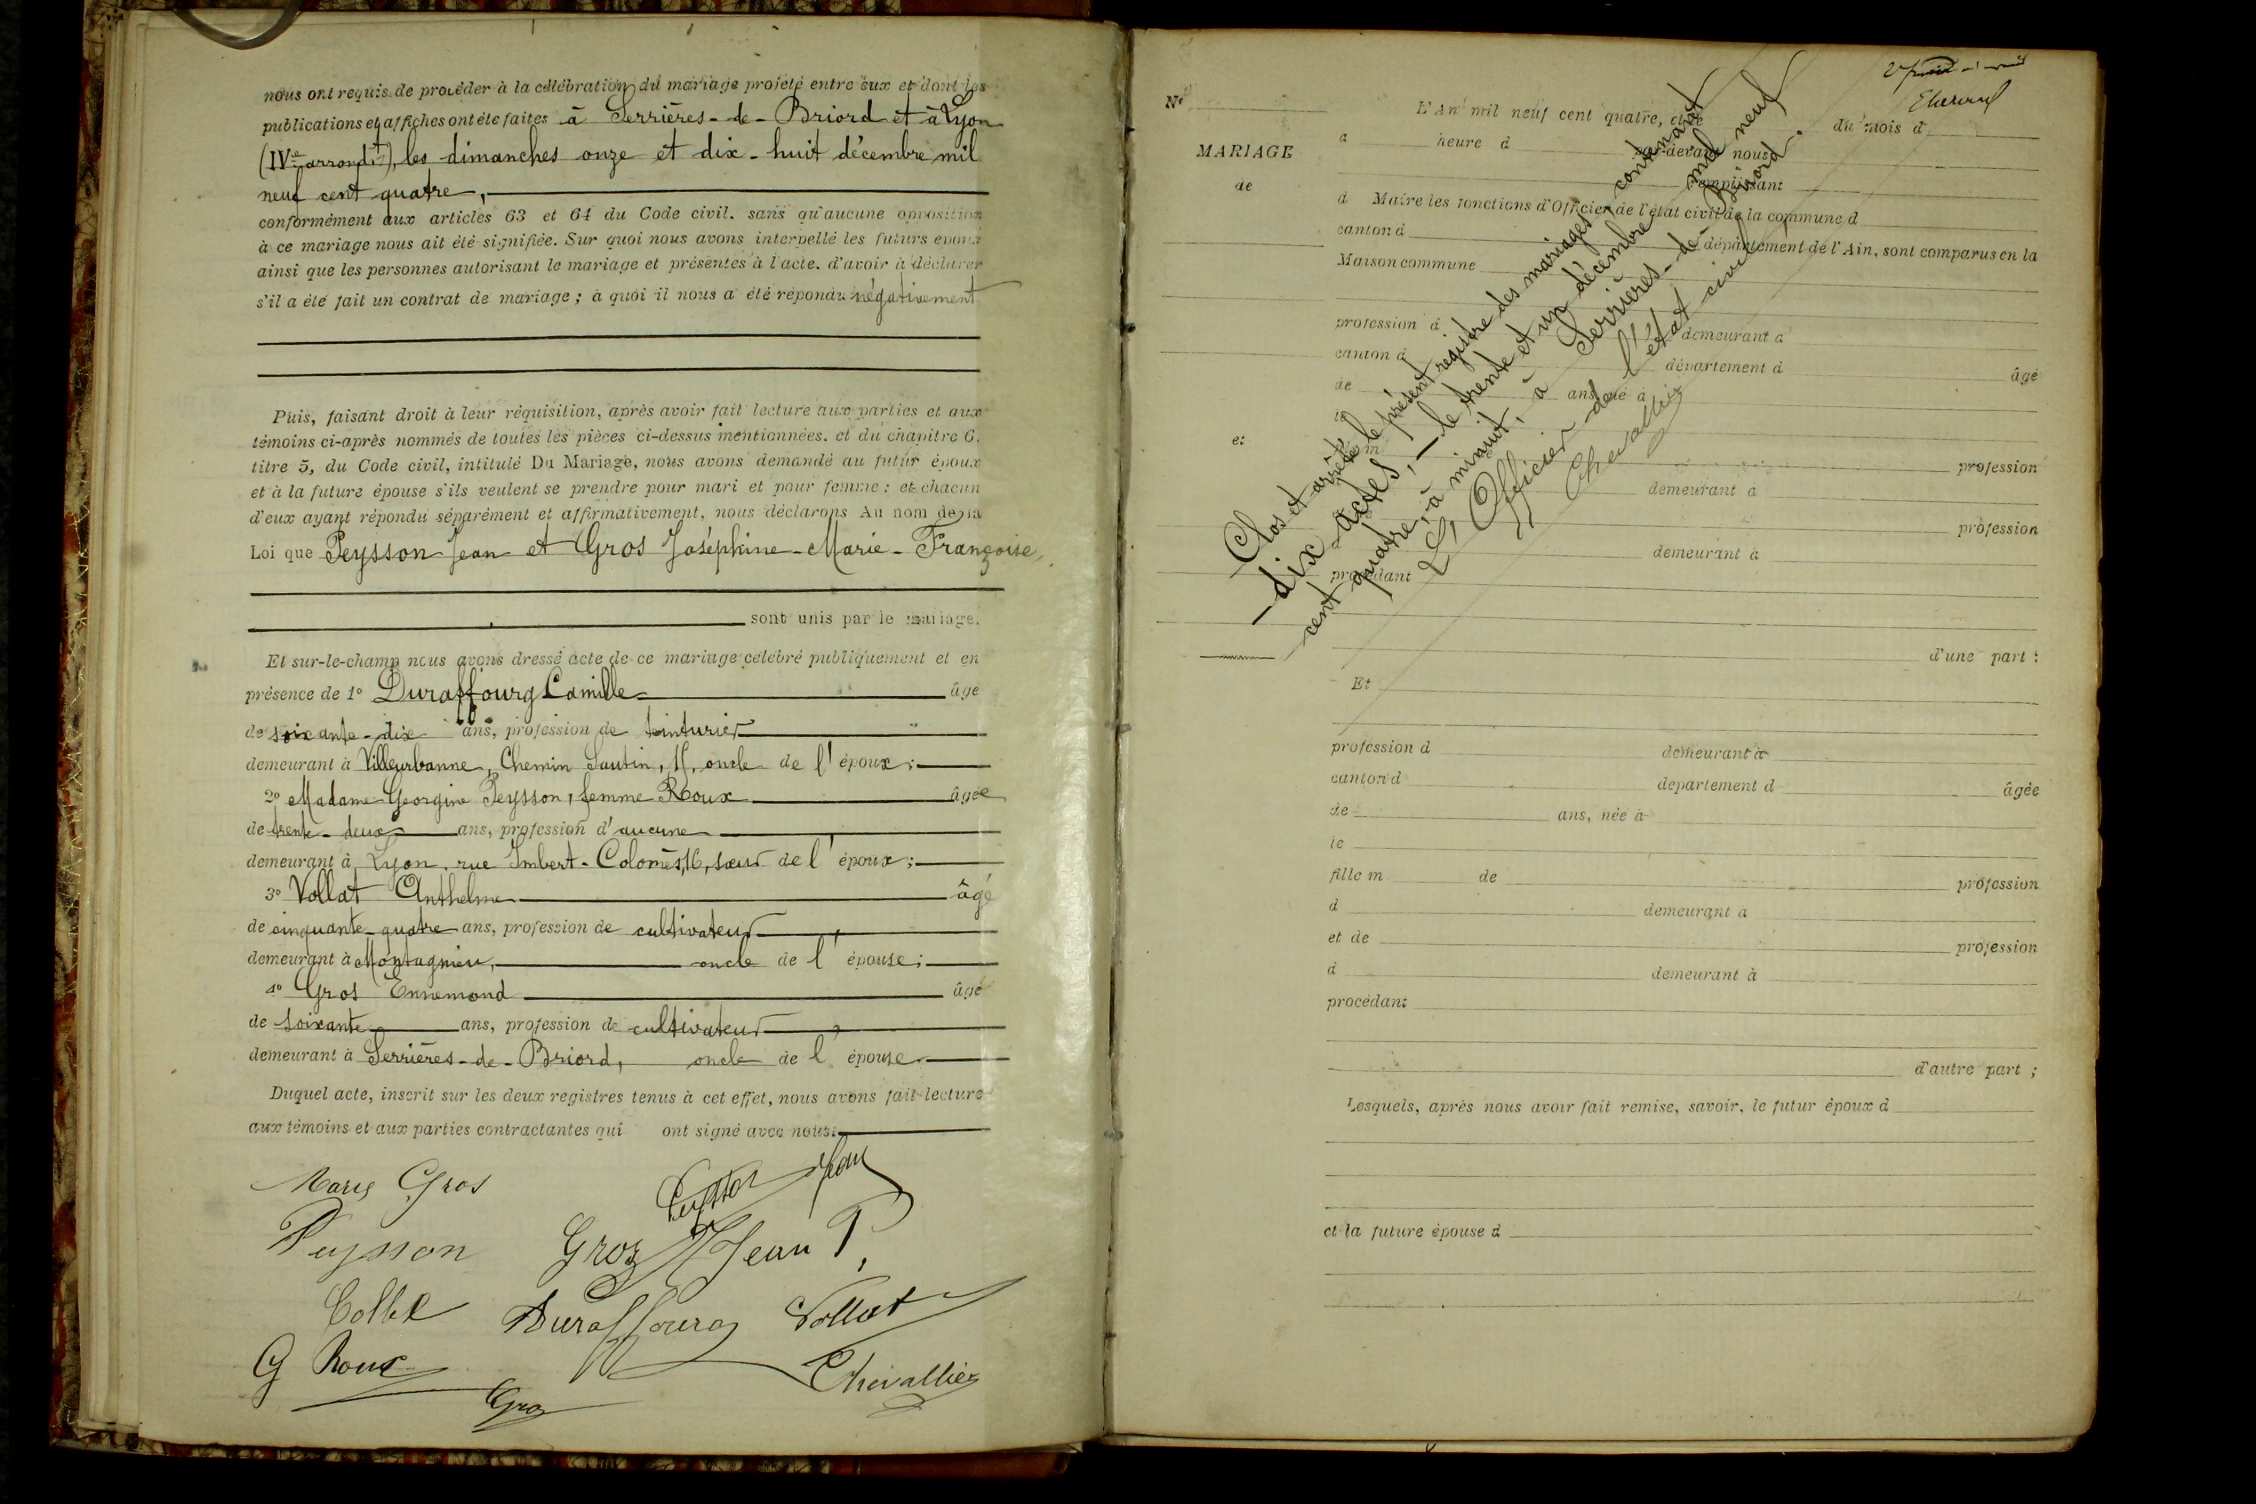 nous ont requis de procéder à la célébration du mariage projeté entre eux et dont les
publications et affiches ont été faites à Serrières-de-Briord et à Lyon
(IVe arrondt), les dimanches onze et dix-huit décembre mil
neuf cent quatre,
conformément aux articles 63 et 64 du Code civil. sans qu'aucune opposition
à ce mariage nous ait été signifiée. Sur quoi nous avons interpellé les futurs époux
ainsi que les personnes autorisant le mariage et présentes à l'acte. d'avoir à déclarer
s'il a été fait un contrat de mariage ; à quoi il nous a été répondu négativement
Puis, faisant droit à leur réquisition, après avoir fait lecture aux parties et aux
témoins ci-après nommés de toutes les pièces ci-dessus mentionnées. et du chapitre 6.
titre 5, du Code civil, intitulé Du Mariage, nous avons demandé au futur époux
et à la future épouse s'ils veulent se prendre pour mari et pour femme : et chacun
d'eux ayant répondu séparément et affirmativement, nous déclarons Au nom de la
Loi que Peysson Jean et Gros Joséphine-Marie-Françoise,
sont unis par le mariage.
Et sur-le-champ nous avons dressé acte de ce mariage célébré publiquement et en
présence de 1° Duraffourg Camille âgé
de soixante-dix ans, profession de teinturier
demeurant à Villeurbanne, Chemin Sautin, oncle de l'époux ;
2° Madame Georgine Peysson, femme Roux âgée
de trente-deux ans, profession d'aucune
demeurant à Lyon, rue Imbert-Colomès, 16, sœur de l'époux ;
3° Vollat Anthelme âgé
de cinquante-quatre ans, profession de cultivateur,
demeurant à Montagnieu, oncle de l'épouse ;
4° Gros Ennemond âgé
de soixante ans, profession de cultivateur,
demeurant à Serrières-de-Briord, oncle de l'épouse.
Duquel acte, inscrit sur les deux registres tenus à cet effet, nous avons fait lecture
aux témoins et aux parties contractantes qui ont signé avec nous.
Marie Gros Peysson Jean
Peysson Groz Jean P.
Collet Duraffourg Vollat
G Roux Chevallier
Gros
N°
MARIAGE
de
et
L'An mil neuf cent quatre, et le du mois d
a heure d par-devant nous
remplissant
d Maire les fonctions d'Officier de l'état civil de la commune d
canton d département de l'Ain, sont comparus en la
Maison commune
profession d demeurant à
canton d département d âgé
de ans, né à
le
profession
demeurant à
profession
d demeurant à
procédant
d'une part :
Et
profession d demeurant à
canton d département d âgée
de ans, née à
le
fille m de profession
d demeurant à
et de profession
d demeurant à
procédant
d'autre part ;
Lesquels, après nous avoir fait remise, savoir, le futur époux d
et la future épouse d
Clos et arrêté le présent registre des mariages contenant
dix actes, le trente et un décembre mil neuf
cent quatre, à minuit, à Serrières-de-Briord.
L'Officier de l'état civil,
Chevallier